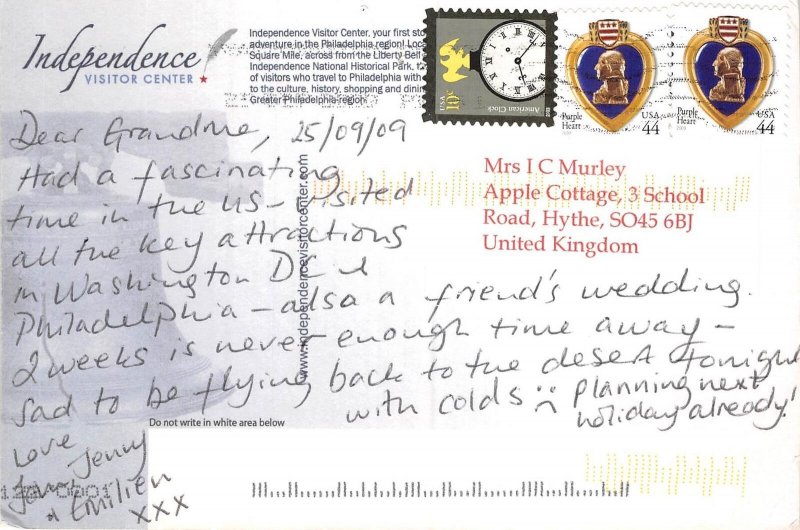 Independence
VISITOR CENTER
Independence Visitor Center, your first sto
adventure in the Philadelphia region! Loc
Square Mile, across from the Liberty Bell
Independence National Historical Park,
of visitors who travel to Philadelphia with
to the culture, history, shopping and dinin
Greater Philadelphia region.
USA 10c
American Clock
Purple
Heart
2009
USA
44
Purple
Heart
2009
USA
44
Dear Grandma, 25/09/09
Had a fascinating
time in the US - visited
all the key attractions
in Washington DC &
Philadelphia - also a friend's wedding.
2 weeks is never enough time away -
sad to be flying back to the desert tonight
with colds :( planning next
holiday already!
Love
Jenny
& Emilien
xxx
www.independencevisitorcenter.com
Mrs I C Murley
Apple Cottage, 3 School
Road, Hythe, SO45 6BJ
United Kingdom
Do not write in white area below